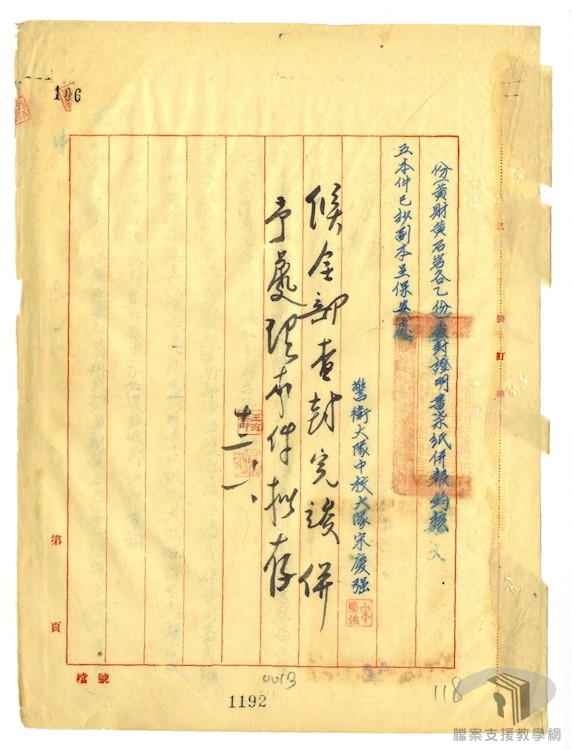 份(黃財黃石岩各乙份)查封證明書柒紙併報鈞核
五本件已抄副本呈保安處
警衛大隊中校大隊宋慶强
候全部查封完竣併
予處理本件擬存
106
裝
訂
線
第
頁
檔號
0013
1192
118
檔案支援教學網